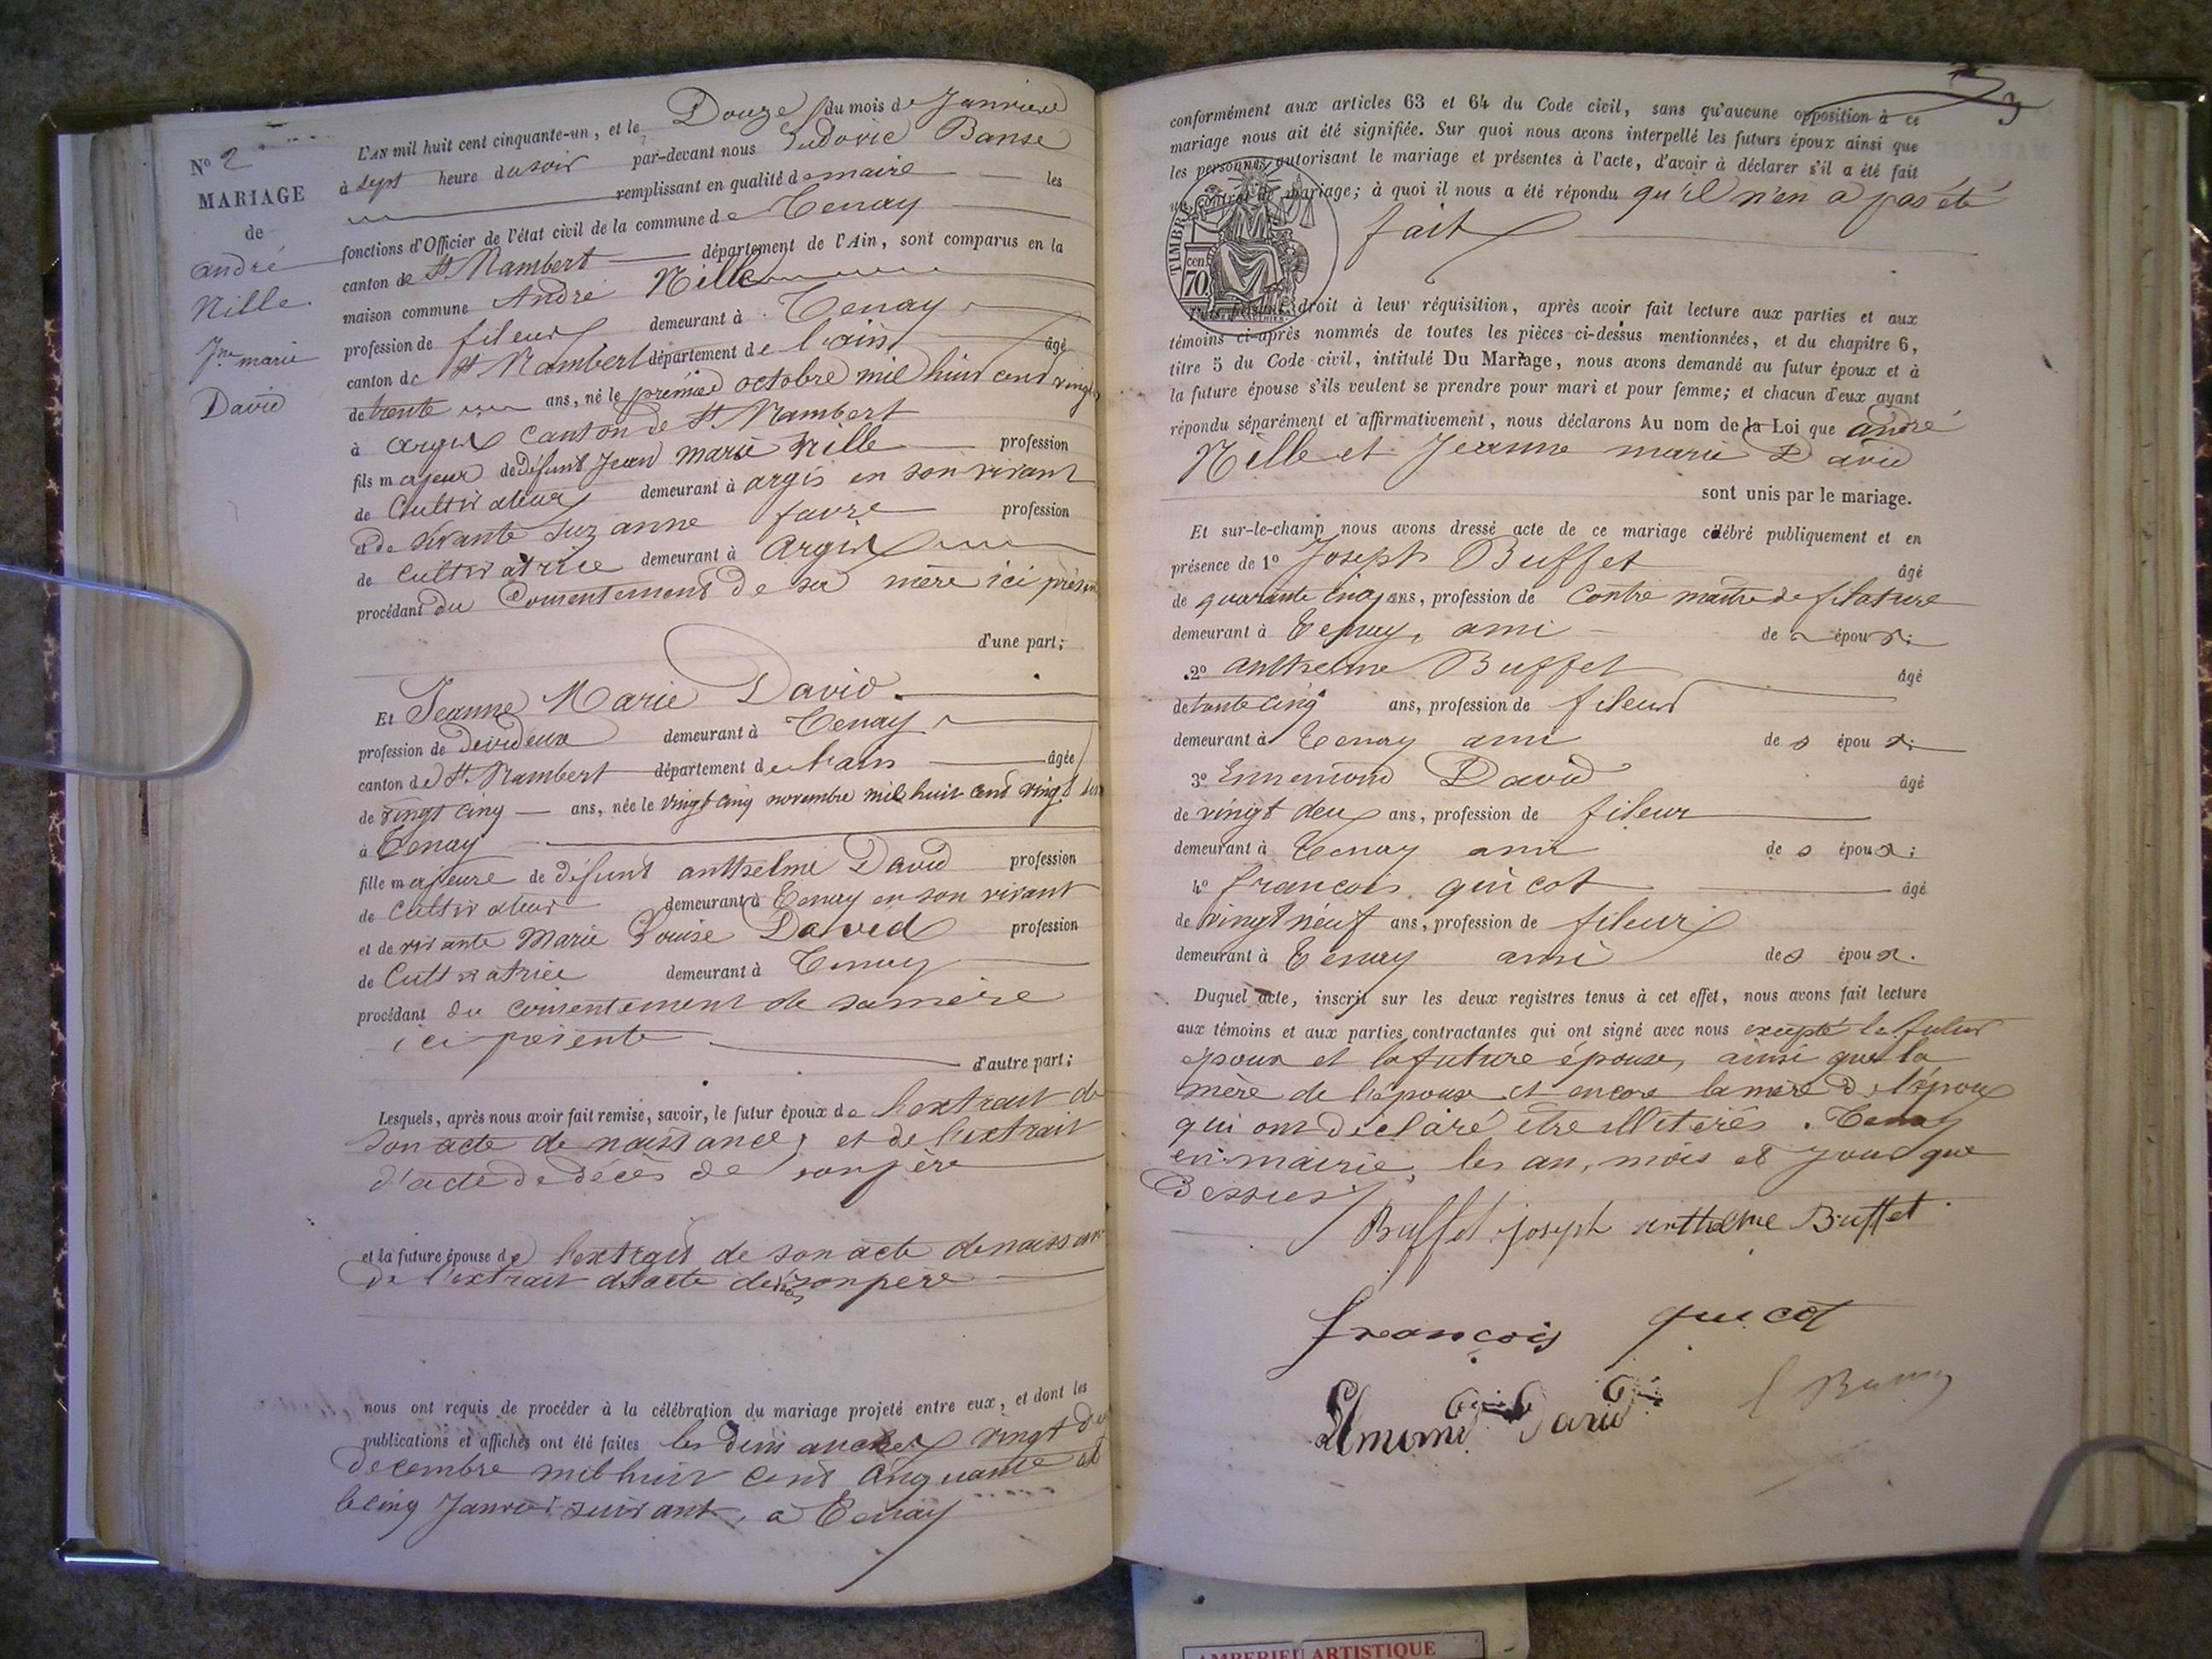 N° 2
MARIAGE
de
André
Nille
Jne marie
David
L'AN mil huit cent cinquante-un, et le Douze du mois de Janvier
à sept heure du soir par-devant nous Ludovic Banse
remplissant en qualité de maire les
fonctions d'Officier de l'état civil de la commune de Tenay
canton de St Rambert département de l'Ain, sont comparus en la
maison commune André Nille
profession de fileur demeurant à Tenay
canton de St Rambert département de l'ain âgé
de trente ans, né le premier octobre mil huit cent vingt
à argis canton de St Rambert
fils majeur de défunt Jean marie Nille profession
de Cultivateur demeurant à argis en son vivant
et de vivante Suzanne favre profession
de Cultivatrice demeurant à Argis
procédant du Consentement de sa mère ici
d'une part;
Et Jeanne Marie David
profession de devideuse demeurant à Tenay
canton de St. Rambert département de l'ain âgée
de vingt cinq ans, née le vingt cinq novembre mil huit cent vingt
à Tenay
fille majeure de défunt anthelme David profession
de Cultivateur demeurant à Tenay en son vivant
et de vivante Marie Louise David profession
de Cultivatrice demeurant à Tenay
procédant du consentement de sa mère
ici présente
d'autre part;
Lesquels, après nous avoir fait remise, savoir, le futur époux de l'extrait de
son acte de naissance, et de l'extrait
d'acte de décès de son père
et la future épouse de l'extrait de son acte de
de l'extrait d'acte de son père
nous ont requis de procéder à la célébration du mariage projeté entre eux, et dont les
publications et affiches ont été faites les dimanches vingt
decembre mil huit cent cinquante et
le cinq Janvier suivant, a Tenay
3
conformément aux articles 63 et 64 du Code civil, sans qu'aucune opposition à ce
mariage nous ait été signifiée. Sur quoi nous avons interpellé les futurs époux ainsi que
les personnes autorisant le mariage et présentes à l'acte, d'avoir à déclarer s'il a été fait
un contrat de mariage; à quoi il nous a été répondu qu'il n'en a pas été
fait
TIMBRE
cen.
70
droit à leur réquisition, après avoir fait lecture aux parties et aux
témoins ci-après nommés de toutes les pièces ci-dessus mentionnées, et du chapitre 6,
titre 5 du Code civil, intitulé Du Mariage, nous avons demandé au futur époux et à
la future épouse s'ils veulent se prendre pour mari et pour femme; et chacun d'eux ayant
répondu séparément et affirmativement, nous déclarons Au nom de la Loi que andré
Nille et Jeanne marie David
sont unis par le mariage.
Et sur-le-champ nous avons dressé acte de ce mariage célébré publiquement et en
présence de 1° Joseph Buffet âgé
de quarante cinq ans, profession de Contre maitre de filature
demeurant à Tenay, ami de époux;
2° anthelme Buffet âgé
de trente cinq ans, profession de fileur
demeurant à Tenay ami des époux;
3° Ennemond David âgé
de vingt deux ans, profession de fileur
demeurant à Tenay ami des époux;
4° françois quicot âgé
de vingt neuf ans, profession de fileur
demeurant à Tenay ami des époux.
Duquel acte, inscrit sur les deux registres tenus à cet effet, nous avons fait lecture
aux témoins et aux parties contractantes qui ont signé avec nous excepté le futur
epoux et la future épouse, ainsi que la
mère de l'épouse et encore la mère de l'époux
qui ont déclaré être illitérés. Tenay
en mairie, les an, mois et jour que
dessus
Buffet joseph anthelme Buffet
françois quicot
David